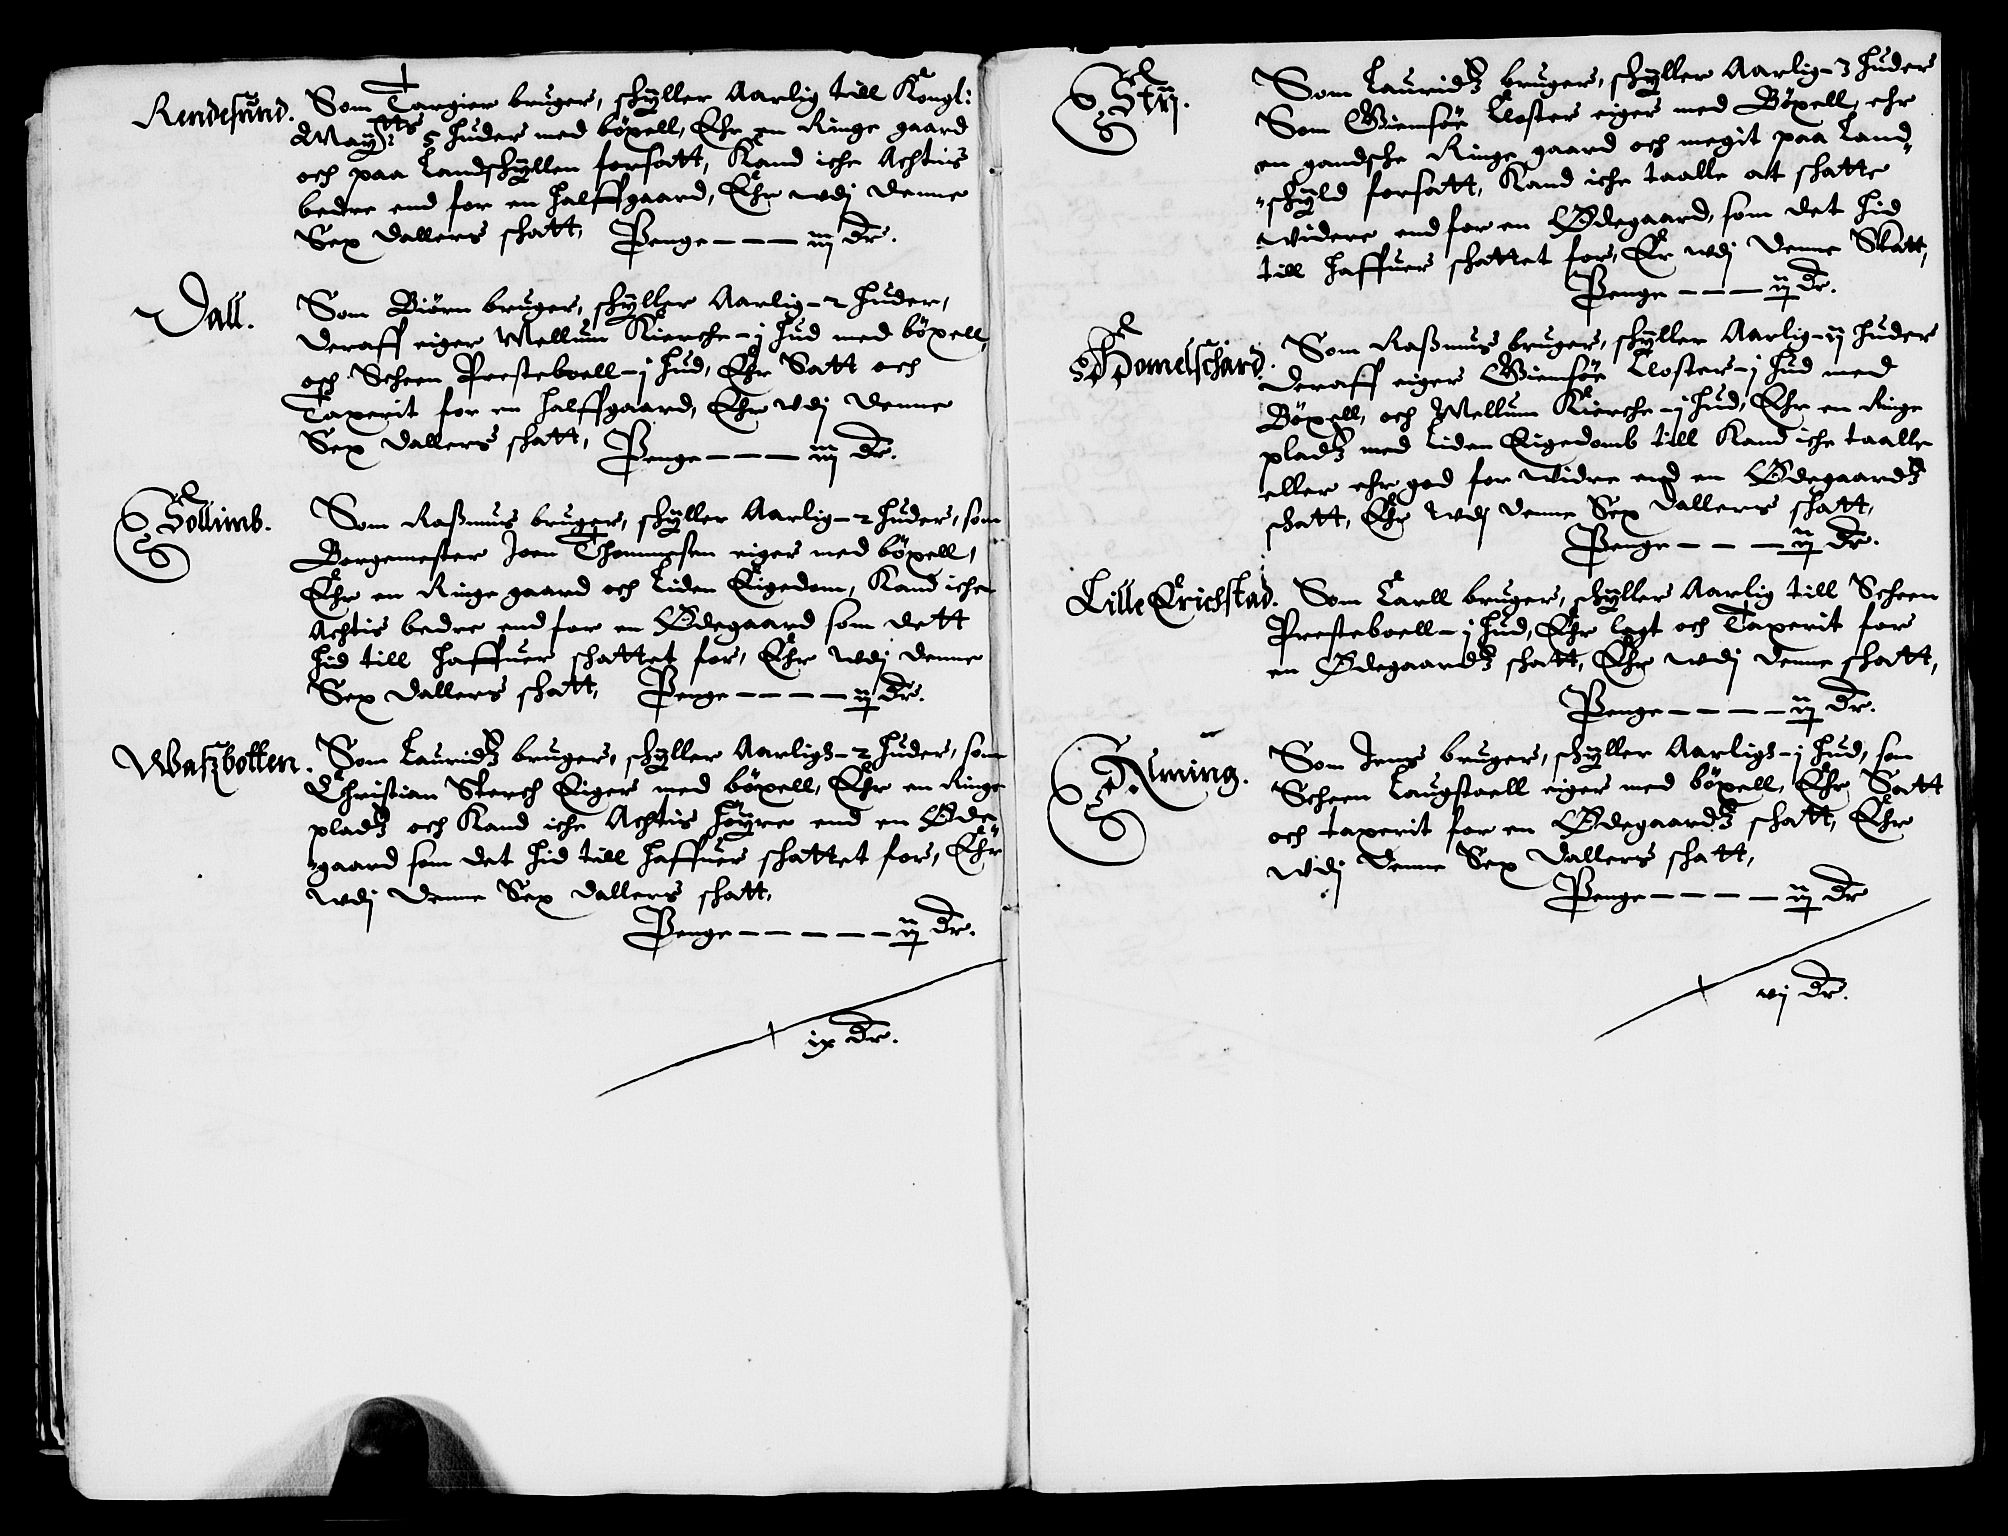 Rendesund. Som Targier bruger, schÿller Aarlig till Kongl:
Maÿtts: 5 huder med böxell, Ehr en Ringe gaard
och paa Landschÿllen forsatt, Kand iche Achtis
bedre end for en halffgaard, Ehr wdj denne
Sex dallers schatt, Penge — — — iij dr.
Dall. Som Biörn bruger, schÿller Aarlig - 2 huder,
deraff eiger Mellum Kierche - j hud med böxell,
och Scheen Presteboell - j hud, Ehr Satt och
Taxerit for en halffgaard, Ehr wdj denne
Sex dallers schatt, Penge — — — iij dr.
Sollimb. Som Raßmus bruger, schÿller Aarlig - 2 huder, som
Borgemester Joen Thommesen eiger med böxell,
Ehr en Ringe gaard och Liden Eigedom, Kand iche
Achtis bedre end for en Ødegaard som dett
hid till haffuer schattet for, Ehr wdj denne
Sex dallers schatt, Penge — — — — ij dr.
Waszbotten. Som Lauridz bruger, schÿller Aarligs - 2 huder, som
Christian Sterch Eiger med böxell, Ehr en Ringe
pladz och Kand iche Achtis höÿre end en Øde
gaard som det hid till haffuer schattet for, Ehr
wdj denne Sex dallers schatt,
Penge — — — — — ij dr.
ix dr.
Stÿ. Som Lauridz bruger, schÿller Aarlig - 3 huder
Som Giemsöe Closter eiger med Böxell, ehr
en gandsche Ringe gaard och megit paa Land
schÿld forsatt, Kand iche taalle at schatte
widere end for en Ødegaard, som det hid
till haffuer schattet for, Er wdj denne Skatt,
Penge — — — ij dr.
Homelschard. Som Raßmus bruger, schÿller Aarlig - ij huder
deraff eiger Giemsöe Closter - j hud med
Böxell, och Mellum Kierche - j hud, Ehr en Ringe
pladz med Liden Eigedomb till Kand iche taalle
eller ehr god for widre end en Ødegaardz
schatt, Ehr wdj denne Sex dallers schatt,
Penge — — — ij dr.
Lille Erichstad. Som Carll bruger, schÿller Aarlig till Scheen
Presteboell - j hud, Ehr lagt och Taxerit for
en Ødegaardz schatt, Ehr wdj denne schatt,
Penge — — — — ij dr.
Alming. Som Jens bruger, schÿller Aarligs - j hud, som
Scheen Laugstoell eiger med böxell, Ehr Satt
och taxerit for en Ødegaardz schatt, Ehr
wdj denne Sex dallers schatt,
Penge — — — — ij dr
vj dr.